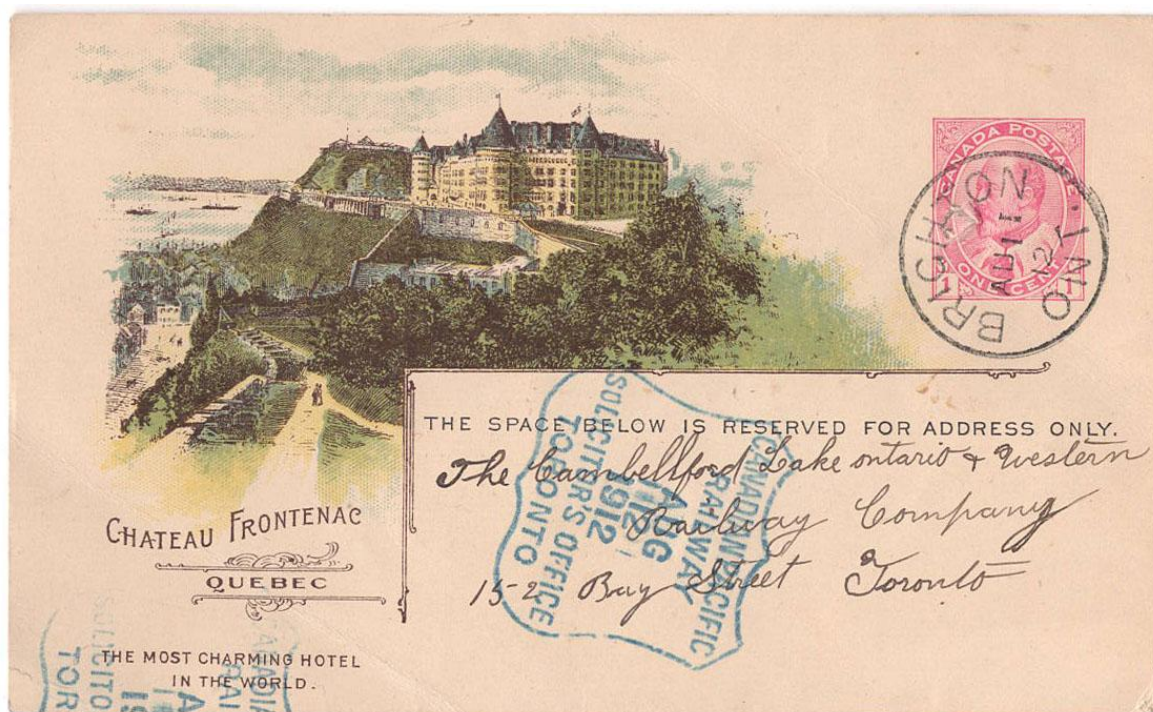 CANADA POSTAGE
ONE CENT
BRIGHTON
AU 1
12
ONT.
THE SPACE BELOW IS RESERVED FOR ADDRESS ONLY.
The Cambellford Lake ontario & Western
Railway Company
152 Bay Street Toronto
CANADIAN PACIFIC
RAILWAY
AUG
1912
SOLICITER'S OFFICE
TORONTO
CHATEAU FRONTENAC
QUEBEC
THE MOST CHARMING HOTEL
IN THE WORLD.
CANADIA
RAI
A
19
SOLICITO
TOR